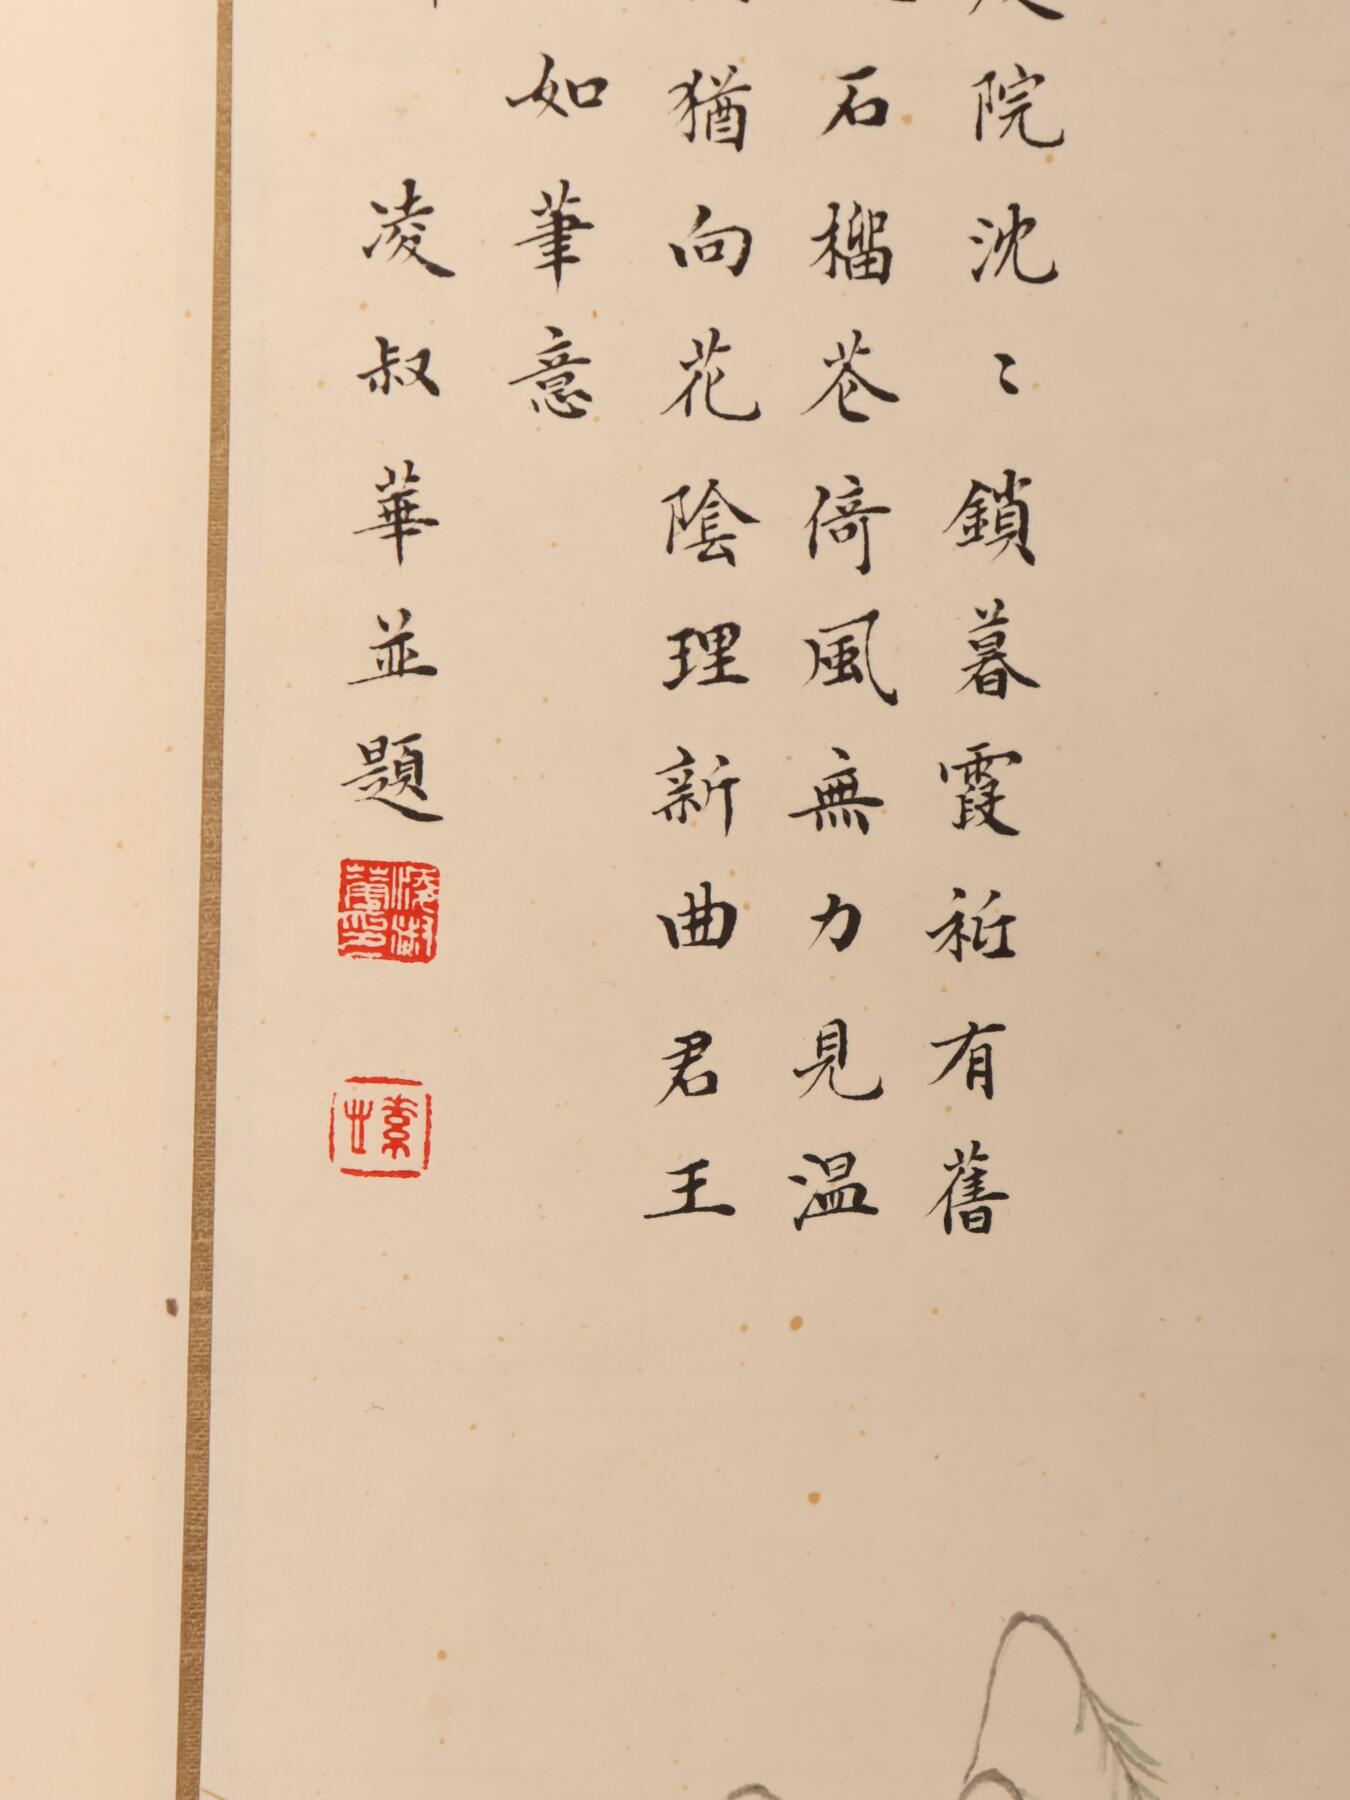 院沈〻鎖暮霞祗有舊
石榴苍倚風無力見溫
猶向花陰理新曲君王
如筆意
凌叔華並題
凌叔華印